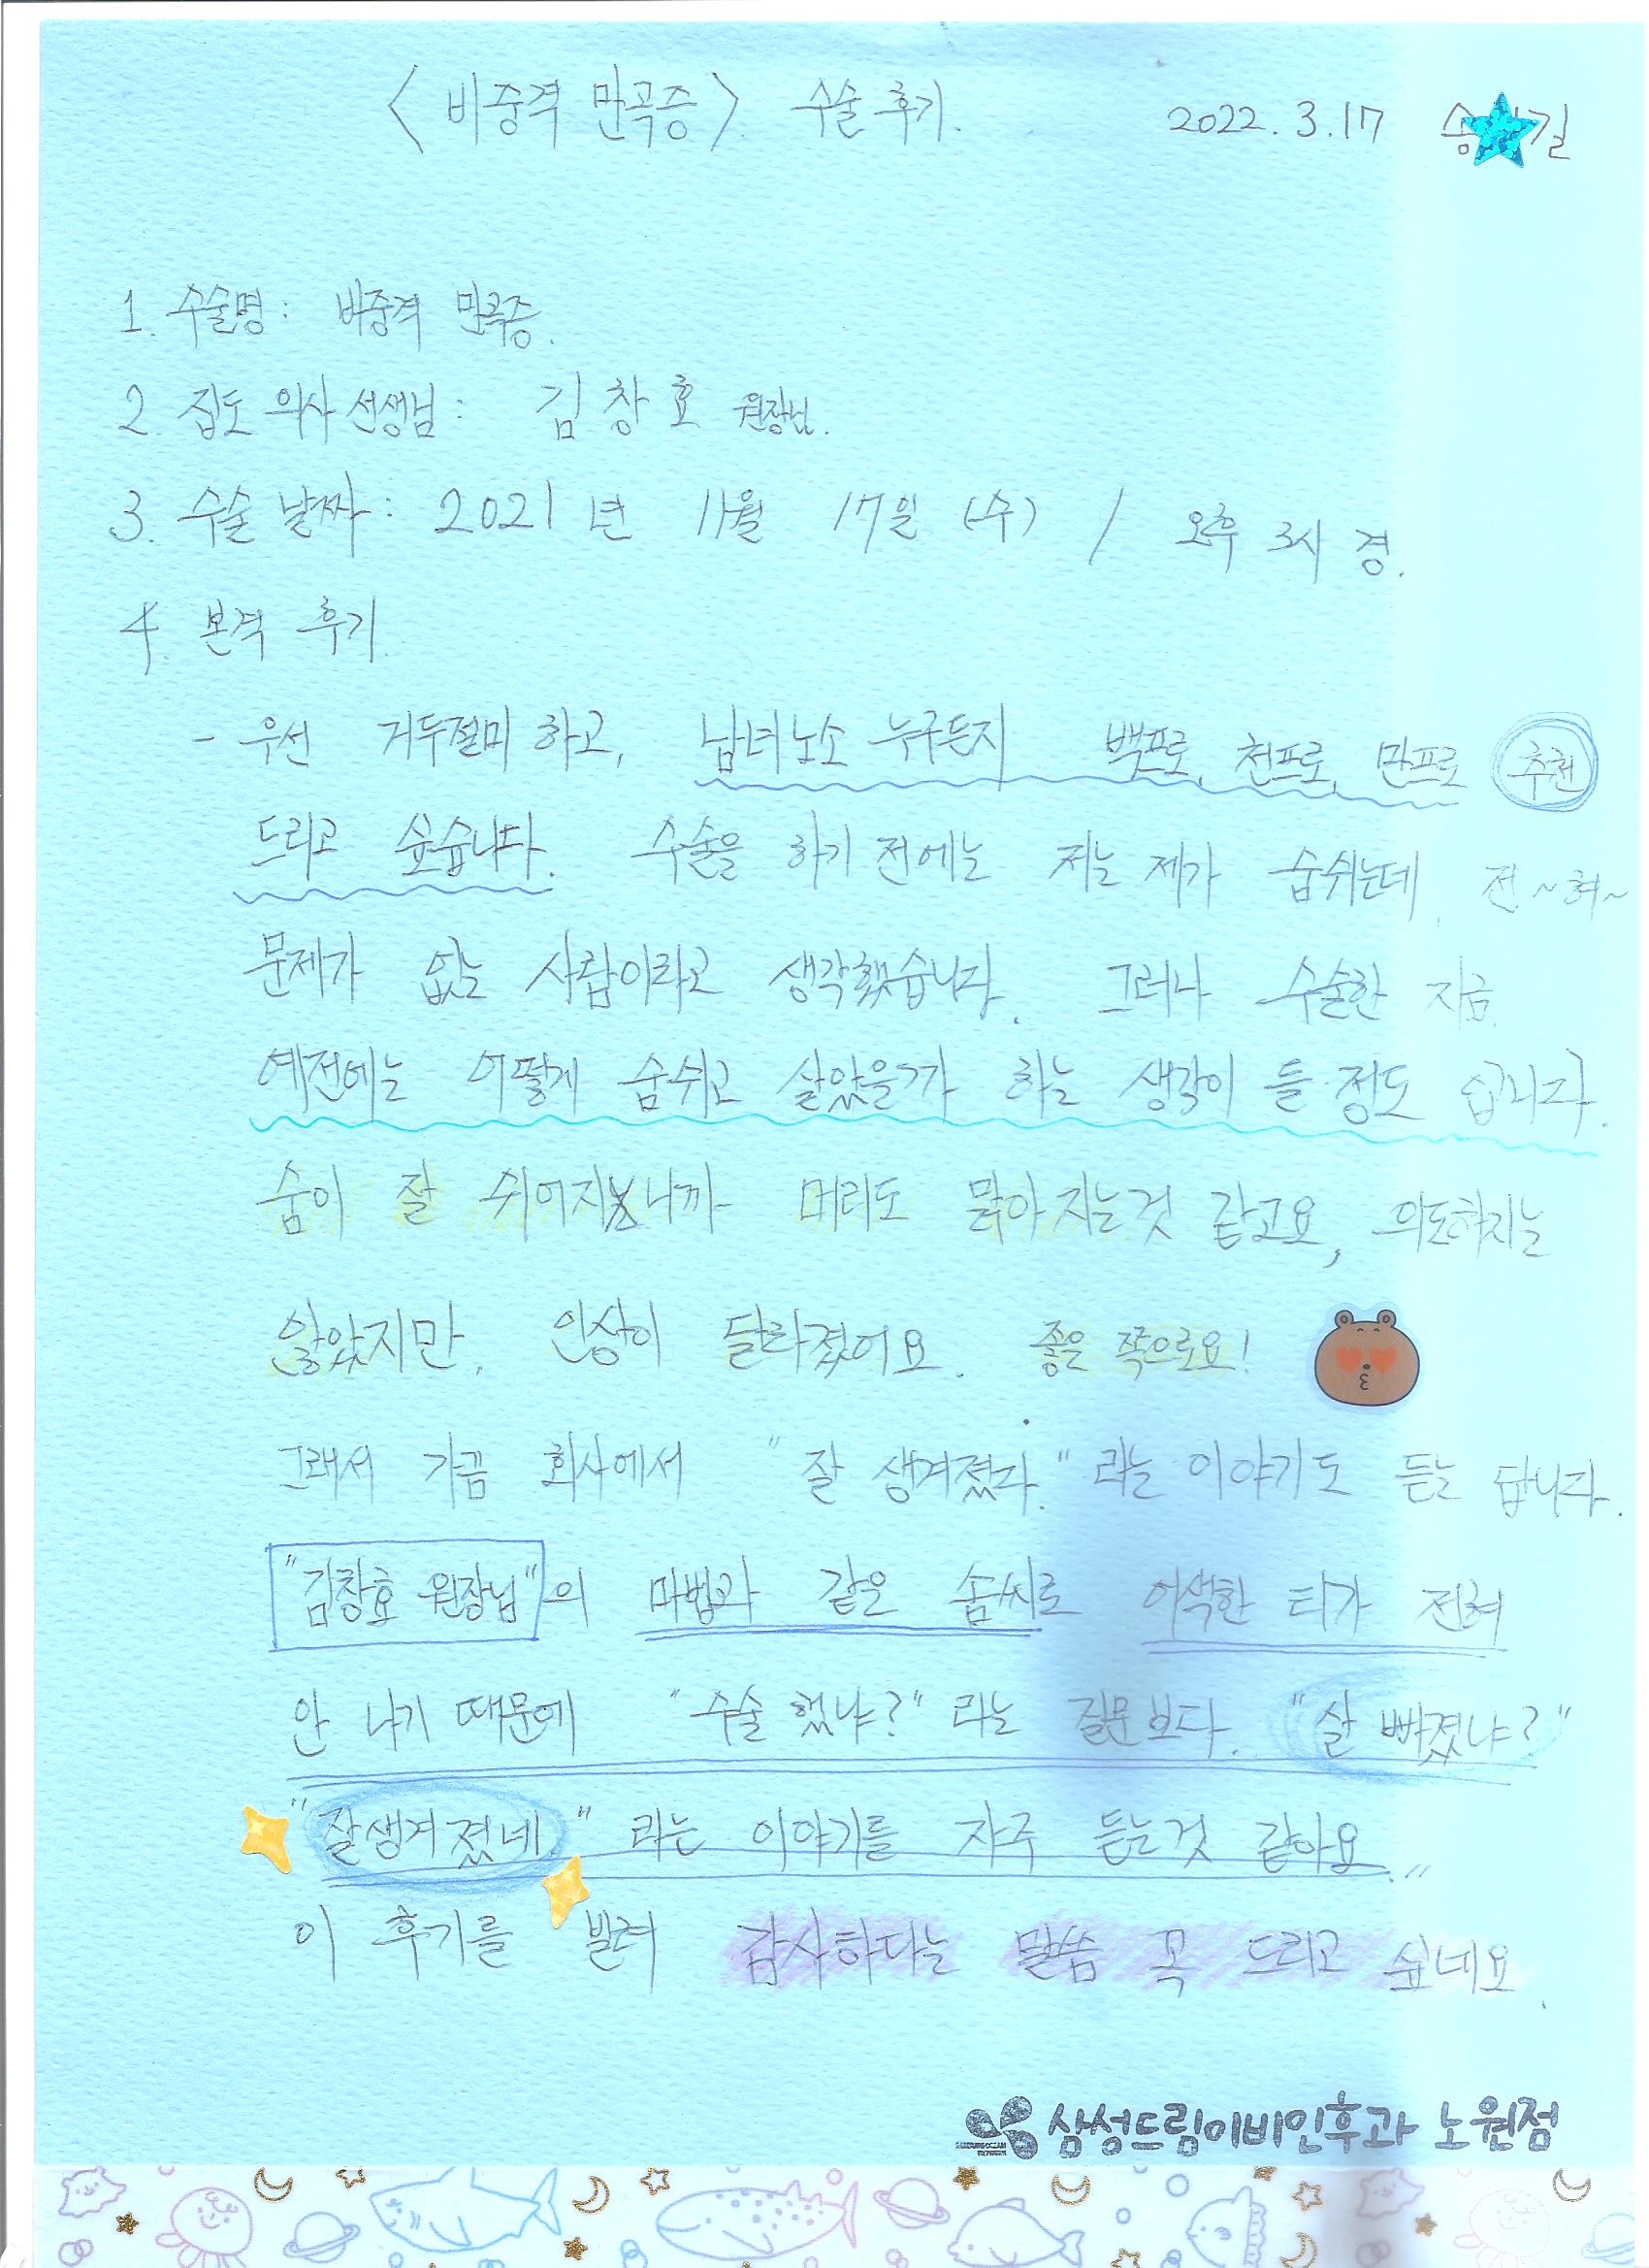 <비중격 만곡증> 수술 후기. 2022.3.17 송 길
1. 수술명: 비중격 만곡증.
2. 집도 의사 선생님: 김창호 원장님.
3. 수술 날짜: 2021년 11월 17일 (수) / 오후 3시 경.
4. 본격 후기.
- 우선 거두절미 하고, 남녀노소 누구든지 백프로, 천프로, 만프로 추천
드리고 싶습니다. 수술을 하기 전에는 저는 제가 숨쉬는데, 전~혀~
문제가 없는 사람이라고 생각했습니다. 그러나 수술한 지금.
예전에는 어떻게 숨쉬고 살았을까 하는 생각이 들 정도 입니다.
숨이 잘 쉬어지니까 머리도 맑아 지는것 같고요, 의도하지는
않았지만, 인상이 달라졌어요. 좋은 쪽으로요!
그래서 가끔 회사에서 "잘 생겨졌다." 라는 이야기도 듣는 답니다.
"김창호 원장님"의 마법과 같은 솜씨로 어색한 티가 전혀
안 나기 때문에 "수술 했냐?" 라는 질문보다. "살 빠졌냐?"
"잘생겨졌네" 라는 이야기를 자주 듣는것 같아요..."
이 후기를 빌려 감사하다는 말씀 꼭 드리고 싶네요.
삼성드림이비인후과 노원점